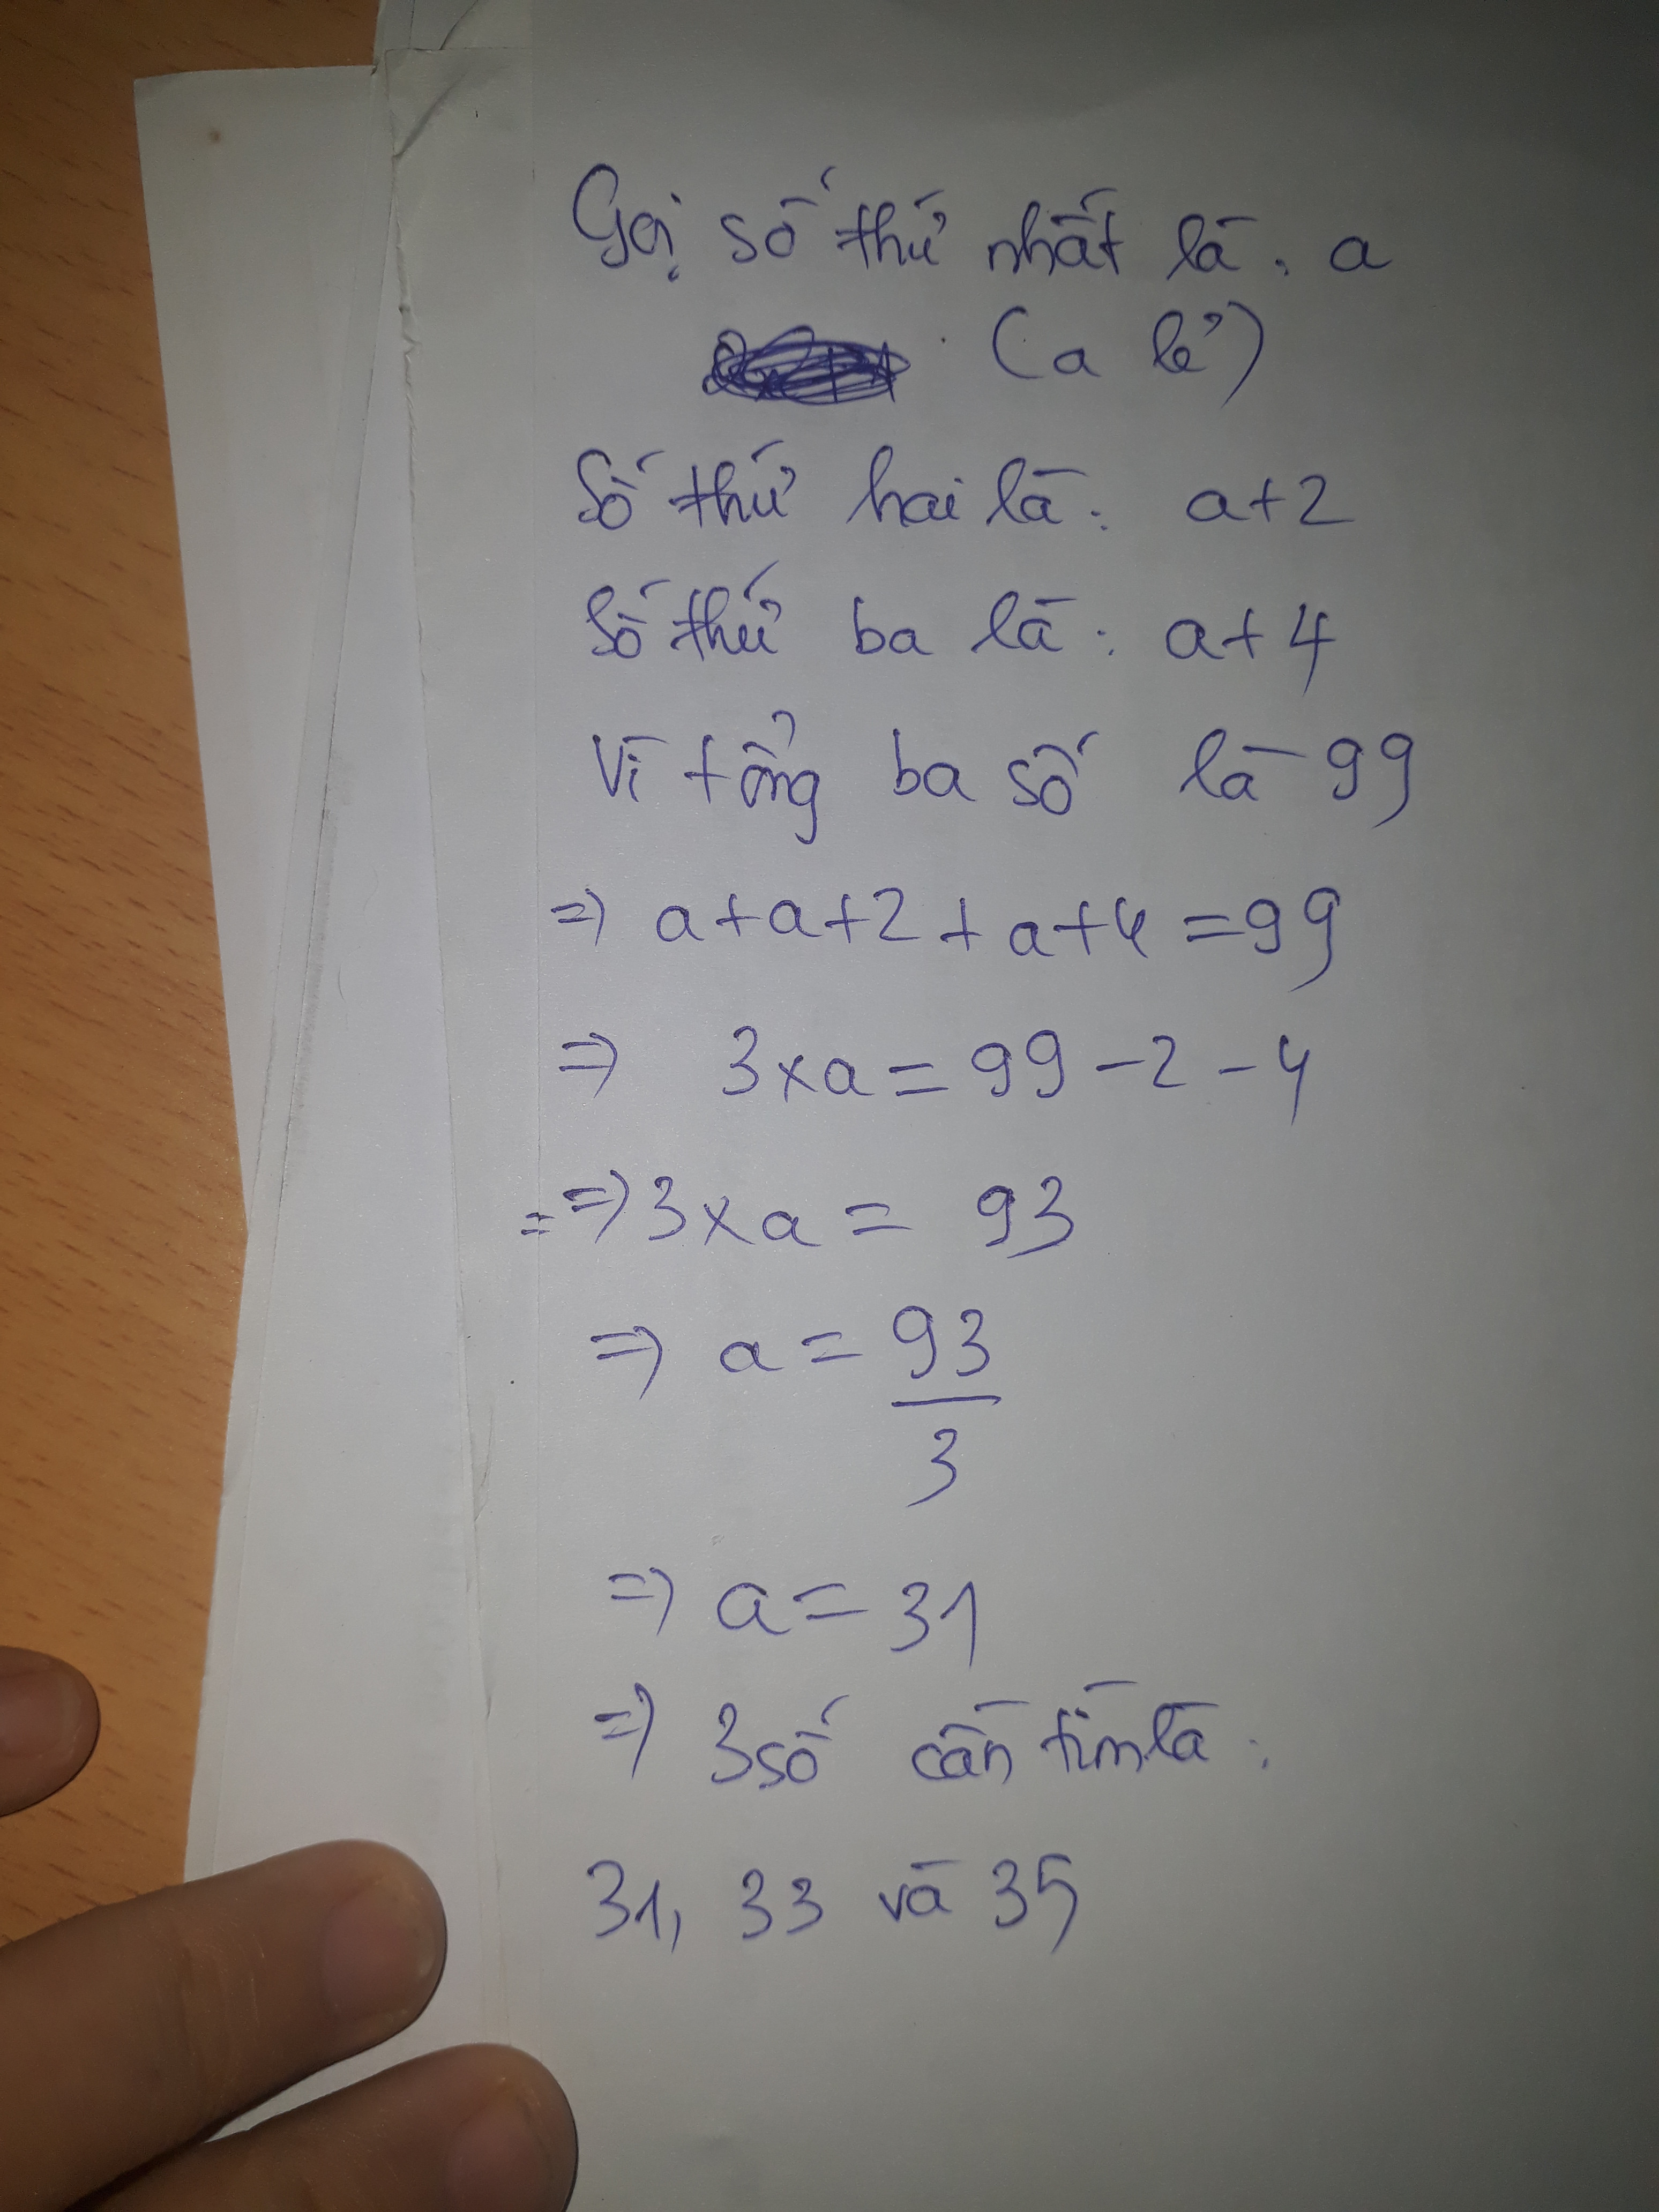 Gọi số thứ nhất là: a
(a lẻ)
Số thứ hai là: a+2
Số thứ ba là: a+4
Vì tổng ba số là 99
=> a+a+2+a+4=99
=> 3xa=99-2-4
= => 3xa= 93
=> a= 93/3
=> a=31
=> 3 số cần tìm là:
31, 33 và 35